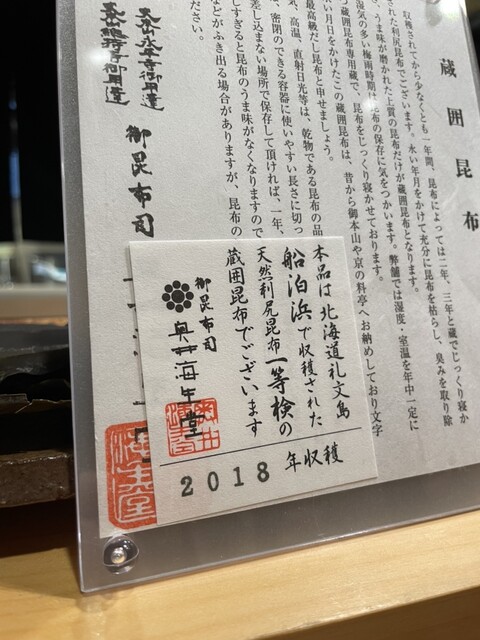 蔵囲昆布
収穫されてから少なくとも一年間、昆布によっては二年、三年と蔵でじっくり寝か
された利尻昆布でございます。永い年月をかけて充分に昆布を枯らし、臭みを取り除
き、うま味が磨かれた上質の昆布だけが蔵囲昆布となります。
湿気の多い梅雨時期は昆布の保存に気をつかいます。弊舗では湿度・室温を年中一定に
蔵囲昆布専用蔵で、昆布をじっくり寝かせております。
い月日をかけたこの蔵囲昆布は、昔から御本山や京の料亭へお納めしており文字
最高級だし昆布と申せましょう。
気、高温、直射日光等は、乾物である昆布の品
、密閉のできる容器に使いやすい長さに切っ
差し込まない場所で保存して頂ければ、一年、
しすぎると昆布のうま味がなくなりますので
などがふき出る場合がありますが、昆布の
ださい。
大本山永平寺御用達
大本山總持寺御用達
御昆布司
海生堂
本品は北海道礼文島
船泊浜で収穫された
天然利尻昆布一等検の
蔵囲昆布でございます
御昆布司
奥井海生堂
2018年収穫